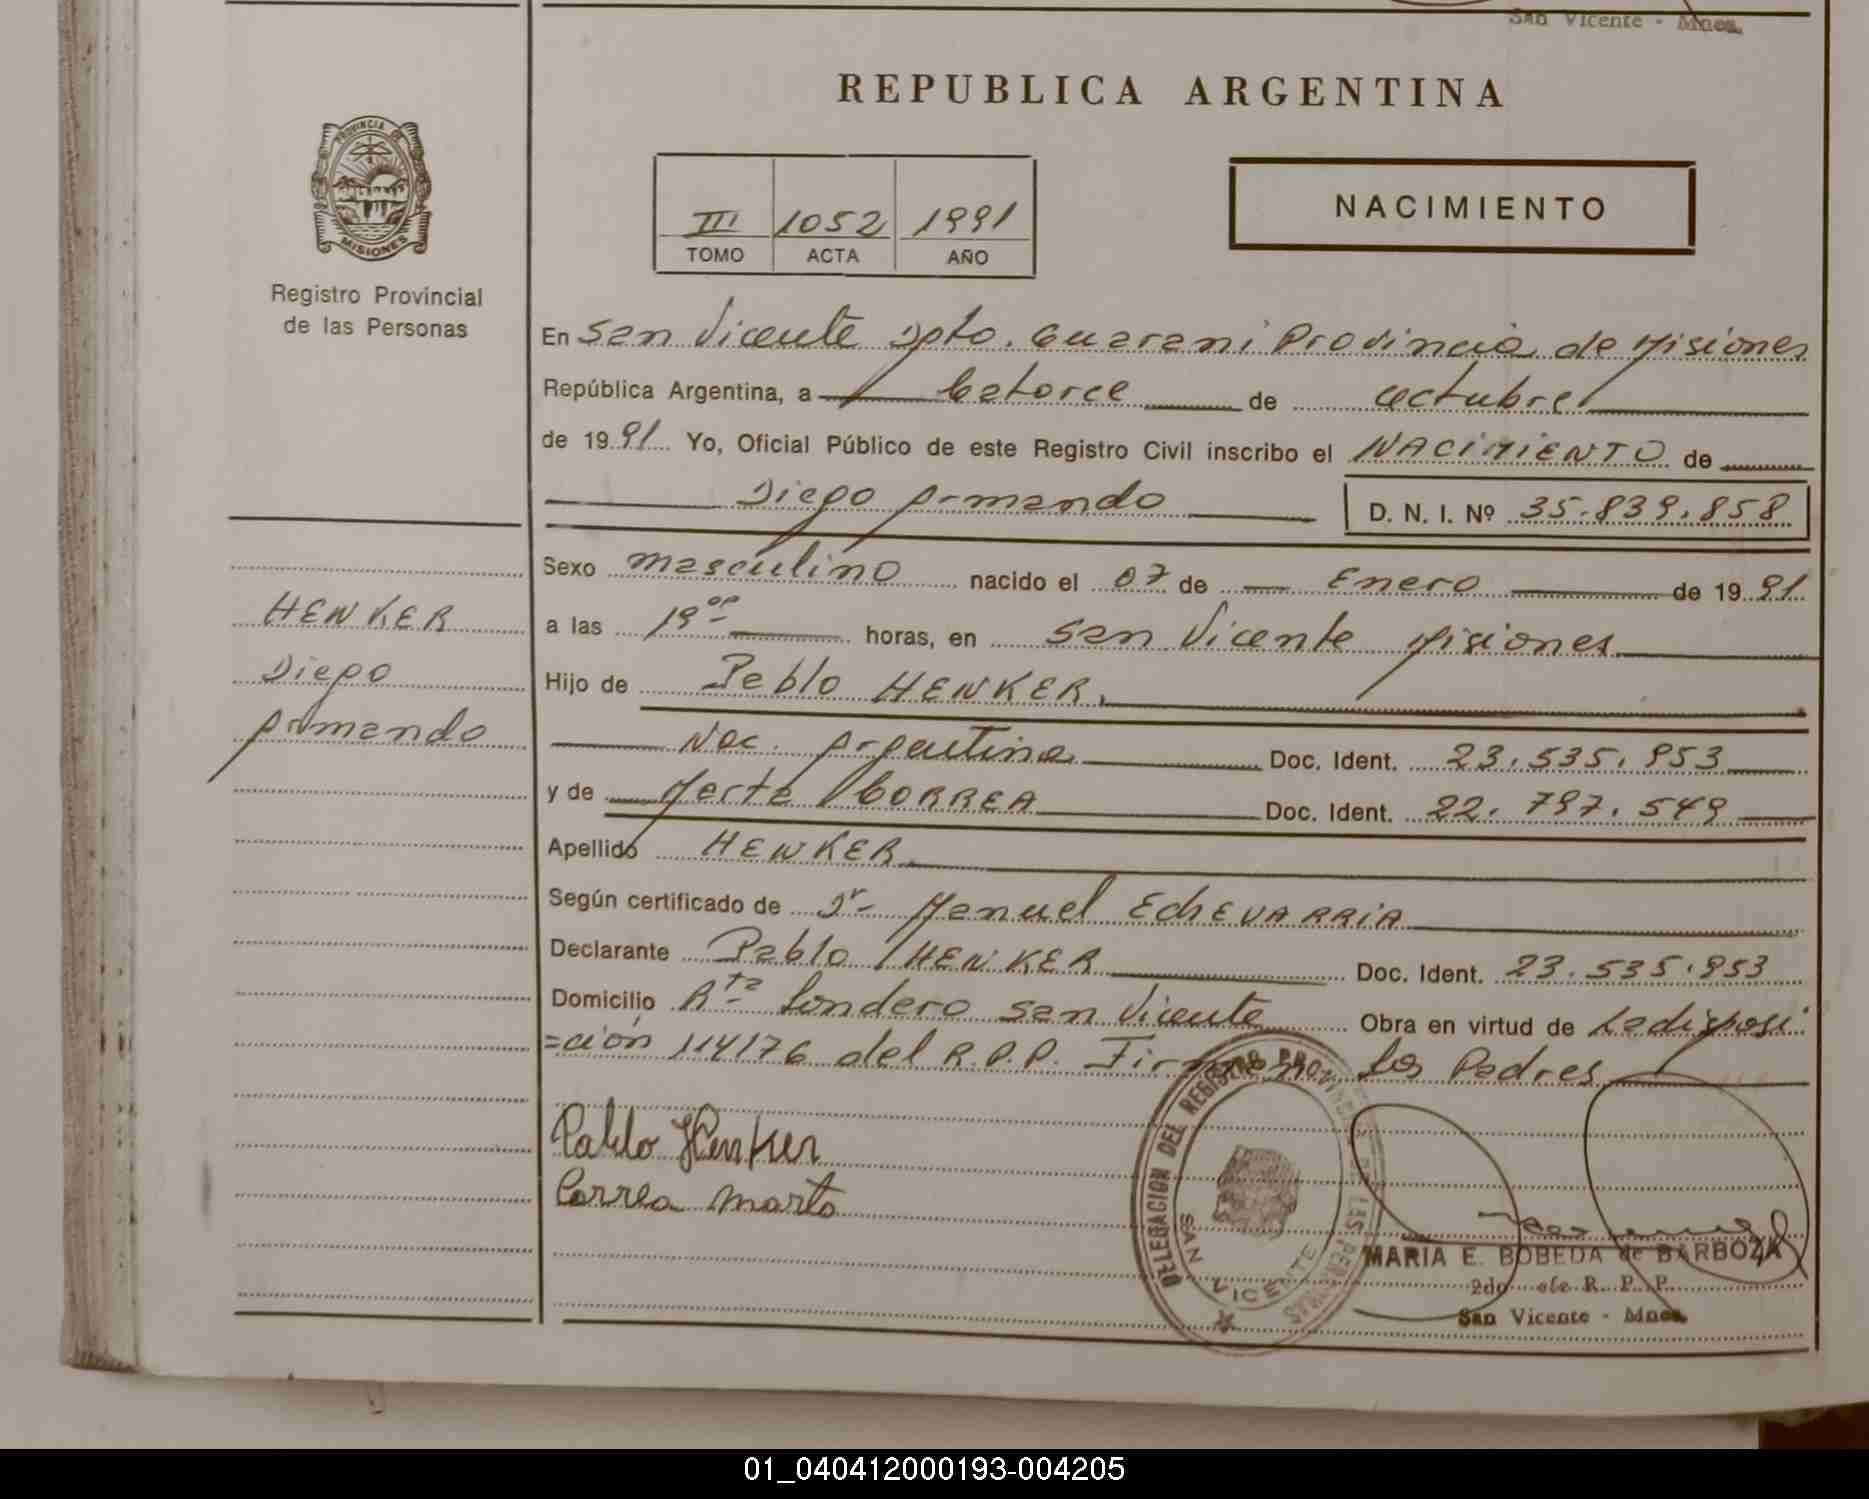 San Vicente - Mnes.
REPUBLICA ARGENTINA
PROVINCIA DE
MISIONES
Registro Provincial
de las Personas
III 1052 1991
TOMO ACTA AÑO
NACIMIENTO
En San Vicente Dpto. Guarani Provincia de Misiones
República Argentina, a Catorce de octubre
de 1991 Yo, Oficial Público de este Registro Civil inscribo el NACIMIENTO de
Diego Armando D. N. I. Nº 35.839.858
Sexo masculino nacido el 07 de Enero de 1991
HENKER
a las 19ºº horas, en San Vicente Misiones
Diego
Hijo de Pablo HENKER.
Armando
Nac. Argentina Doc. Ident. 23.535.953
y de Marta CORREA Doc. Ident. 22.797.549
Apellido HENKER
Según certificado de Dr- Manuel EchEVARRiA
Declarante Pablo HENKER Doc. Ident. 23.535.953
Domicilio Rta Londero San Vicente Obra en virtud de La disposi
=ción 114176 del R.P.P. Firman Los Padres
Pablo Henker
Correa Marta
DELEGACION DEL REGISTRO PROVINCIAL DE LAS PERSONAS
SAN VICENTE
MARIA E. BOBEDA de BARBOZA
2do Jefe R. P. P.
San Vicente - Mnes.
01_040412000193-004205